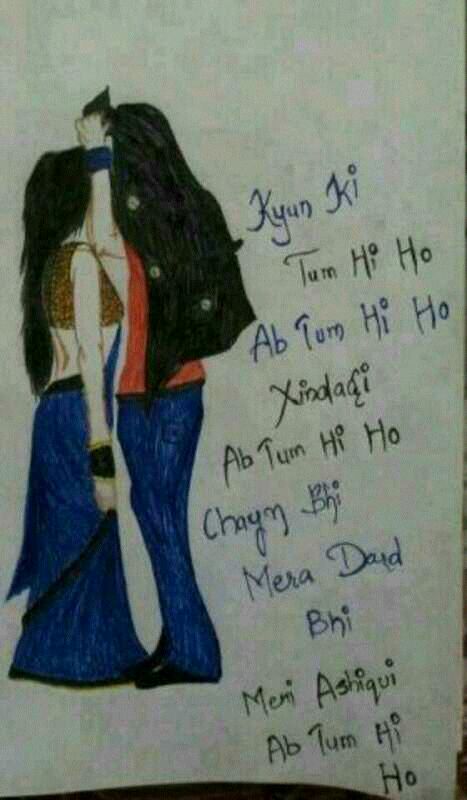 Kyun Ki
Tum Hi Ho
Ab Tum Hi Ho
Xindagi
Ab Tum Hi Ho
Chayn Bhi
Mera Dard
Bhi
Meri Ashiqui
Ab Tum Hi
Ho